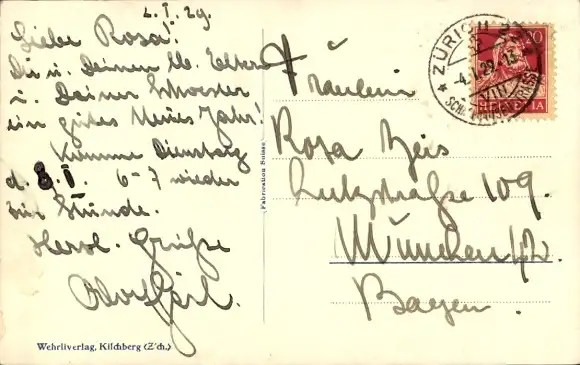 2.I.29.
Liebe Rosa!
Dir u. Deinen lb. Eltern
u. Deiner Schwester
ein gutes Neues Jahr!
Komme Dienstag
d. 8.I. 6-7 wieder
zur Stunde.
Herzl. Grüße
Fräulein
Rosa Geis
Lutzstraße 109.
München 42.
Bayern.
ZÜRICH
4.I.29.
20
HELVETIA
Fabrication Suisse
Wehrliverlag, Kilchberg (Zch.)